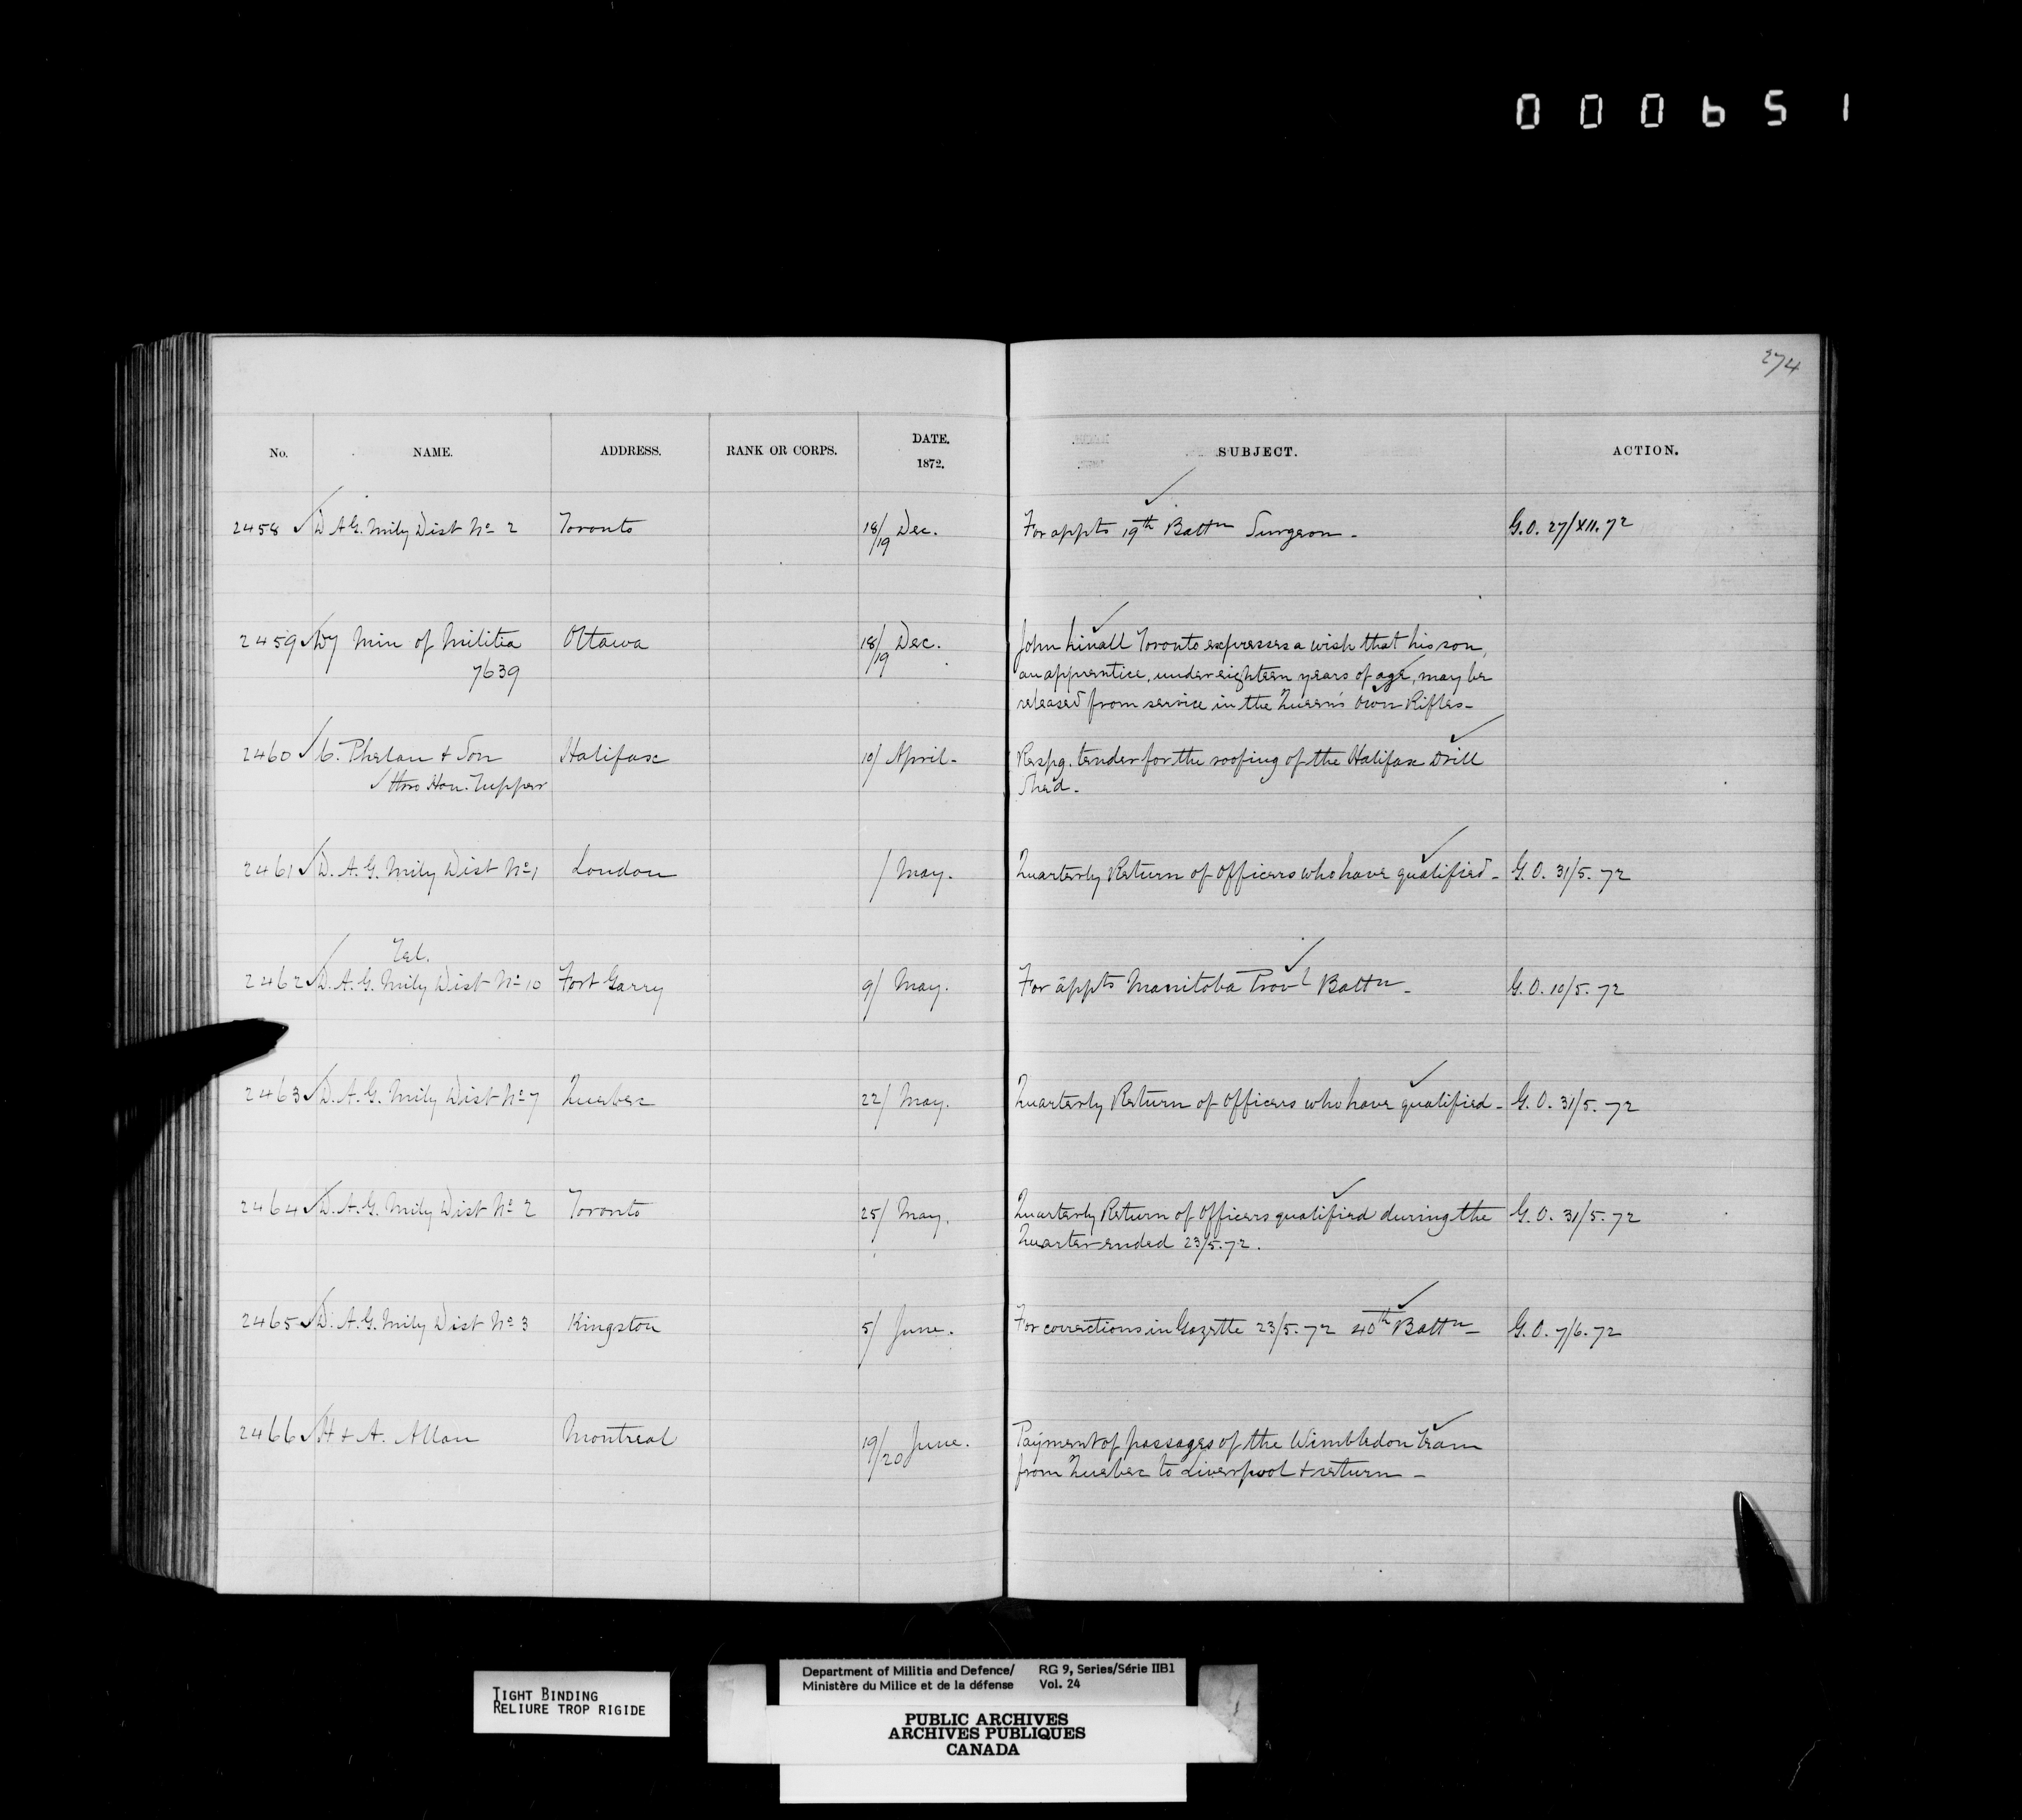 000651
274
No. NAME. ADDRESS. RANK OR CORPS. DATE. 1872. SUBJECT. ACTION.
2458 D A G. Mily Dist No 2 Toronto 18/19 Dec. For appts 19th Battn Surgeon - G.O. 27/XII.72
2459 Dy Min of Militia Ottawa 18/19 Dec. John Toronto expresses a wish that his son,
7639 an apprentice, under eighteen years of age, may be
released from service in the Queen's Own Rifles -
2460 C. Phelan + Son Halifax 10/ April - Respg. tender for the roofing of the Halifax Drill
thro Hon. Tupper Shed -
2461 D. A. G. Mily Dist No 1 London / May. Quarterly Return of Officers who have qualified - G. O. 31/5. 72
Tel.
2462 D. A. G. Mily Dist No 10 Fort Garry 9/ May. For appts Manitoba Provl Battn - G. O. 10/5. 72
2463 D. A. G. Mily Dist No 7 Quebec 22/ May. Quarterly Return of Officers who have qualified - G. O. 31/5. 72
2464 D. A. G. Mily Dist No 2 Toronto 25/ May. Quarterly Return of Officers qualified during the G. O. 31/5. 72
Quarter ended 23/5. 72.
2465 D. A. G. Mily Dist No 3 Kingston 5/ June. For corrections in Gazette 23/5. 72 40th Battn - G. O. 7/6. 72
2466 H + A. Allan Montreal 19/20 June. Payment of passages of the Wimbledon Team
from Quebec to Liverpool + return -
TIGHT BINDING
RELIURE TROP RIGIDE
Department of Militia and Defence/ RG 9, Series/Série IIB1
Ministère du Milice et de la défense Vol. 24
PUBLIC ARCHIVES
ARCHIVES PUBLIQUES
CANADA